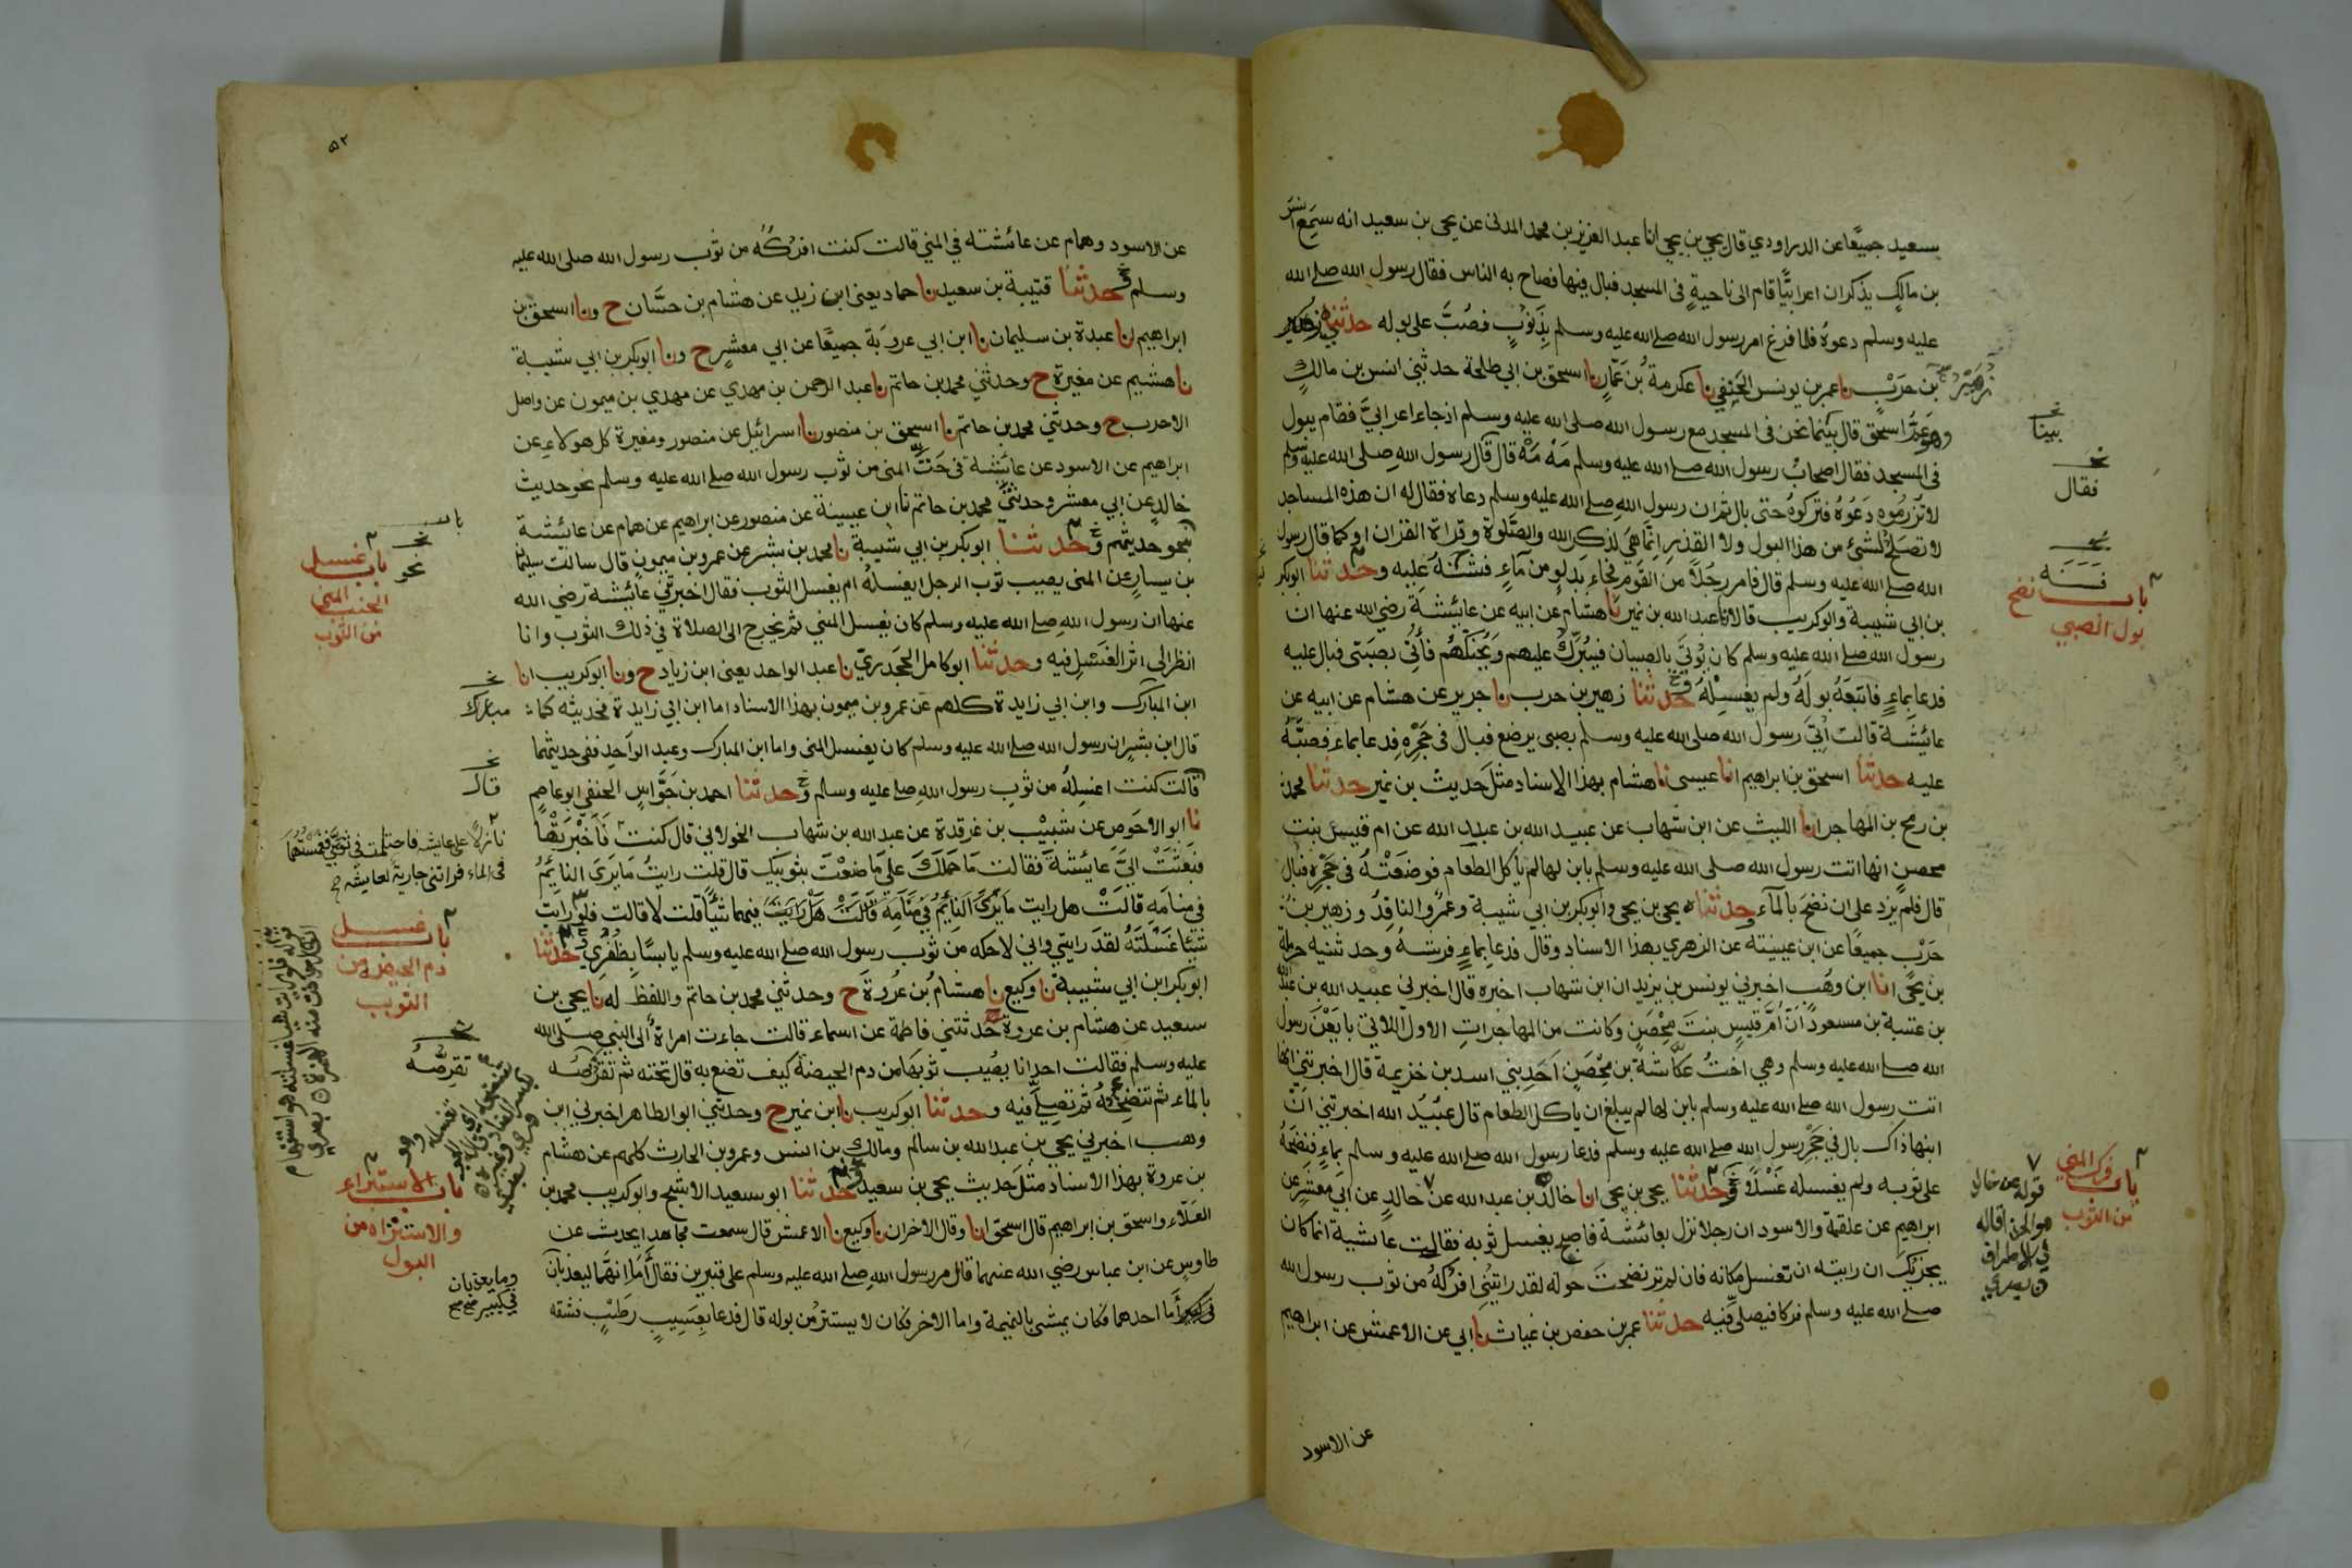 سعيد جميعًا عن الدراوردي قال يحيى بن يحيى انا عبد العزيز بن محمد المدني عن يحيى بن سعيد انه سمع انس
بن مالك يذكر ان اعرابيًّا قام الى ناحيةٍ في المسجد فبال فيها فصاح به الناس فقال رسول الله صلى الله
عليه وسلم دعوهُ فلما فرغ امر رسول الله صلى الله عليه وسلم بِذَنُوبٍ فصُبَّ على بوله حدثني زهير
بن حَرْبٍ نا عمر بن يونس الحَنَفِي نا عكرمة بن عَمَّارٍ نا اسحق بن ابي طلحة حدثني انس بن مالكٍ
وهو عَمُّ اسحق قال بينما نحن في المسجد مع رسول الله صلى الله عليه وسلم اذ جاء اعرابيٌّ فقام يبول
في المسجد فقال اصحابُ رسول الله صلى الله عليه وسلم مَهْ مَهْ قال قال رسول الله صلى الله عليه وسلم
لا تُزرِمُوه دَعُوهُ فتركوهُ حتى بال ثم ان رسول الله صلى الله عليه وسلم دعاه فقال له ان هذه المساجد
لا تصلح لشئ من هذا البول ولا القذر إنما هي لذكر الله والصَّلوة وقراة القران او كما قال رسول
الله صلى الله عليه وسلم قال فامر رجلاً من القوم فجاء بدلوٍ من مآءٍ فشنَّهُ عليه وحدثنا ابو بكر
بن ابي شيبة وابو كريب قالا نا عبد الله بن نمير نا هشام عن ابيه عن عائشة رضي الله عنها ان
رسول الله صلى الله عليه وسلم كان يُؤتَى بالصبيان فيُبَرِّكُ عليهم ويُحَنِّكُهُم فأُتِي بصبيّ فبال عليه
فدعا بماءٍ فاتبَعَهُ بولَهُ ولم يغسِلْهُ وحدثنا زهير بن حرب نا جرير عن هشام عن ابيه عن
عائشة قالت أُتِيَ رسول الله صلى الله عليه وسلم بصبي يرضع فبال في حَجْرِهِ فدعا بماء فصبَّهُ
عليه حدثنا اسحق بن ابراهيم انا عيسى نا هشام بهذا الاسناد مثلَ حديث بن نمير حدثنا محمد
بن رمح بن المهاجر انا الليث عن ابن شهاب عن عبيد الله بن عبد الله عن ام قيس بنت
محصنٍ انها اتت رسول الله صلى الله عليه وسلم بابن لها لم يأكل الطعام فوضعَتْهُ في حَجْرِهِ فبال
قال فلم يزد على ان نضح بالمآء وحدثناه يحيى بن يحيى وابو بكر بن ابي شيبة وعمرٌو الناقدُ وزهير بن
حَرْبٍ جميعًا عن ابن عيينة عن الزهري بهذا الاسناد وقال فدعا بماءٍ فرشهُ وحدثنيه حرملة
بن يحيى انا ابن وهْب اخبرني يونس بن يزيد ان ابن شهاب اخبره قال اخبرني عبيد الله بن عبد الله
بن عتبة بن مسعود أنَّ أُمَّ قيسٍ بنتَ مِحْصَنٍ وكانت من المهاجرات الاول اللاتي بايَعْنَ رسول
الله صلى الله عليه وسلم وهي اختُ عكاشة بن مِحْصَنٍ احَدِ بني اسد بن خزيمة قال اخبرتني انها
اتت رسول الله صلى الله عليه وسلم بابن لها لم يبلغ ان ياكل الطعام قال عبيد الله اخبرتني انّ
ابنها ذاك بال في حَجْر رسول الله صلى الله عليه وسلم فدعا رسول الله صلى الله عليه وسلم بماءٍ فنضحَهُ
على ثوبه ولم يغسله غَسْلاً وحدثنا يحيى بن يحيى انا خالد بن عبد الله عن خالدٍ عن ابي معشرٍ عن
ابراهيم عن علقمة والاسود ان رجلا نزل بعائشة فاصبح يغسل ثوبه فقالت عائشة انما كان
يجزيك ان رايته ان تغسل مكانه فان لم تر نضحتَ حوله لقد رايتُنِي افرُكُهُ من ثوب رسول الله
صلى الله عليه وسلم فركا فيصلي فيه حدثنا عمر بن حفص بن غياث نا ابي عن الاعمش عن ابراهيم
عن الاسود
زُهَيْرُ
بينا
فقال
باب نضح
بول الصبي
باب فرك المني
من الثوب
قوله عن خالد
هو الحذا قاله
في الاطراف
٥٢
عن الاسود وهمام عن عائشة في المني قالت كنت افرُكُه من ثوب رسول الله صلى الله عليه
وسلم حدثنا قتيبة بن سعيد نا حماد يعني ابن زيد عن هشام بن حسَّان ح ونا اسحق بن
ابراهيم انا عبدة بن سليمان نا ابن ابي عروبَة جميعًا عن ابي معشرٍ ح ونا ابو بكر بن ابي شيبة
نا هشيم عن مغيرة ح وحدثني محمد بن حاتم نا عبد الرحمن بن مهدي عن مهدي بن ميمون عن واصل
الاحدب ح وحدثني محمد بن حاتم نا اسحق بن منصور نا اسرائيل عن منصور ومغيرة كل هولاءِ عن
ابراهيم عن الاسود عن عائشة في حَتِّ المني من ثوب رسول الله صلى الله عليه وسلم نحو حديث
خالدٍ عن ابي معشر وحدثني محمد بن حاتم نا ابن عيينة عن منصور عن ابراهيم عن همام عن عائشة
بنحو حديثهم وحدثنا ابو بكر بن ابي شيبة نا محمد بن بشر عن عمرو بن ميمون قال سالت سليمان
بن يسارٍ عن المني يصيب ثوب الرجل ايغسلهُ ام يغسل الثوب فقال اخبرتني عائشة رضي الله
عنها ان رسول الله صلى الله عليه وسلم كان يغسل المني ثم يخرج الى الصلاة في ذلك الثوب وانا
انظر الى اثر الغَسْلِ فيه وحدثنا ابو كامل الجحدريّ نا عبد الواحد يعني ابن زياد ح ونا ابو كريب انا
ابن المبارك وابن ابي زايدة كلهم عن عمرو بن ميمون بهذا الاسناد اما ابن ابي زايدة فحديثه كما
قال ابن بشرٍ ان رسول الله صلى الله عليه وسلم كان يغسل المني واما ابن المبارك وعبد الواحد ففي حديثهما
قالت كنت اغسِلُهُ من ثوبِ رسول الله صلى الله عليه وسلم وحدثنا احمد بن جَوَّاسٍ الحنفي ابو عاصمٍ
نا ابو الاحوص عن شبيْب بن غرقدة عن عبد الله بن شهاب الخولاني قال كنت فَأَخْبَرَتْهَا
فبَعَثَتْ اليَّ عائشة فقالت ما حملكَ على ما صنعْتَ بثوبيك قال قلت رايتُ ما يَرَى النائمُ
في منامه قالَتْ هل رايت ما يَرَى النَائِمُ فِي مَنَامِهِ قَالَتْ هَلْ رَايَتَ فيهما شيًا قلت لا قالت فلو رايت
شيئا غَسَلْتَهُ لقد رايتني واني لاحكه من ثوب رسول الله صلى الله عليه وسلم يابسًا بِظُفُرِي وحدثنا
ابو بكر ابن ابي شيبة نا وكيع نا هشامُ بن عُروة ح وحدثني محمد بن حاتم واللفظ له نا يحيى بن
سعيد عن هشام بن عروة حدثتني فاطمة عن اسماء قالت جاءت امراةٌ الى النبي صلى الله
عليه وسلم فقالت احدانا يصُيب ثوبَها من دم الحيضة كيف تصنع به قال تحته ثم تقرُصُه
بالماء ثم تنضحُهُ ثم تصلِّي فيه وحدثنا ابو كريب نا ابن نمير ح وحدثني ابو الطاهر اخبرني ابن
وهب اخبرني يحيى بن عبد الله بن سالم ومالك بن انس وعمرو بن الحارث كلهم عن هشام
بن عروة بهذا الاسناد مثلَ حديث يحيى بن سعيد وحدثنا ابو سعيد الاشج وابو كريب محمد بن
العلاء واسحق بن ابراهيم قال اسحق انا وقال الاخران نا وكيع نا الاعمش قال سمعت مجاهدا يحدث عن
طاوسٍ عن ابن عباس رضي الله عنهما قال مر رسول الله صلى الله عليه وسلم على قبرين فقال أمَا إنهما ليعذبان
في كبير أما احدهما فكان يمشي بالنميمة واما الاخر فكان لا يستتر من بوله قال فدعا بِعَسِيبٍ رَطْبٍ فشقه
باب غسل
المني
من الثوب
نحو
مبارك
قال
نازلاً على عايشة فاحتلمت في ثوبيَّ فغمستُهما
في الماء فراتني جارية لعايشة
باب غسل
دم الحيض من
الثوب
تقرِّصُه
باب الاستبراء
والاستنزاه من
البول
وما يعذبان
في كبير